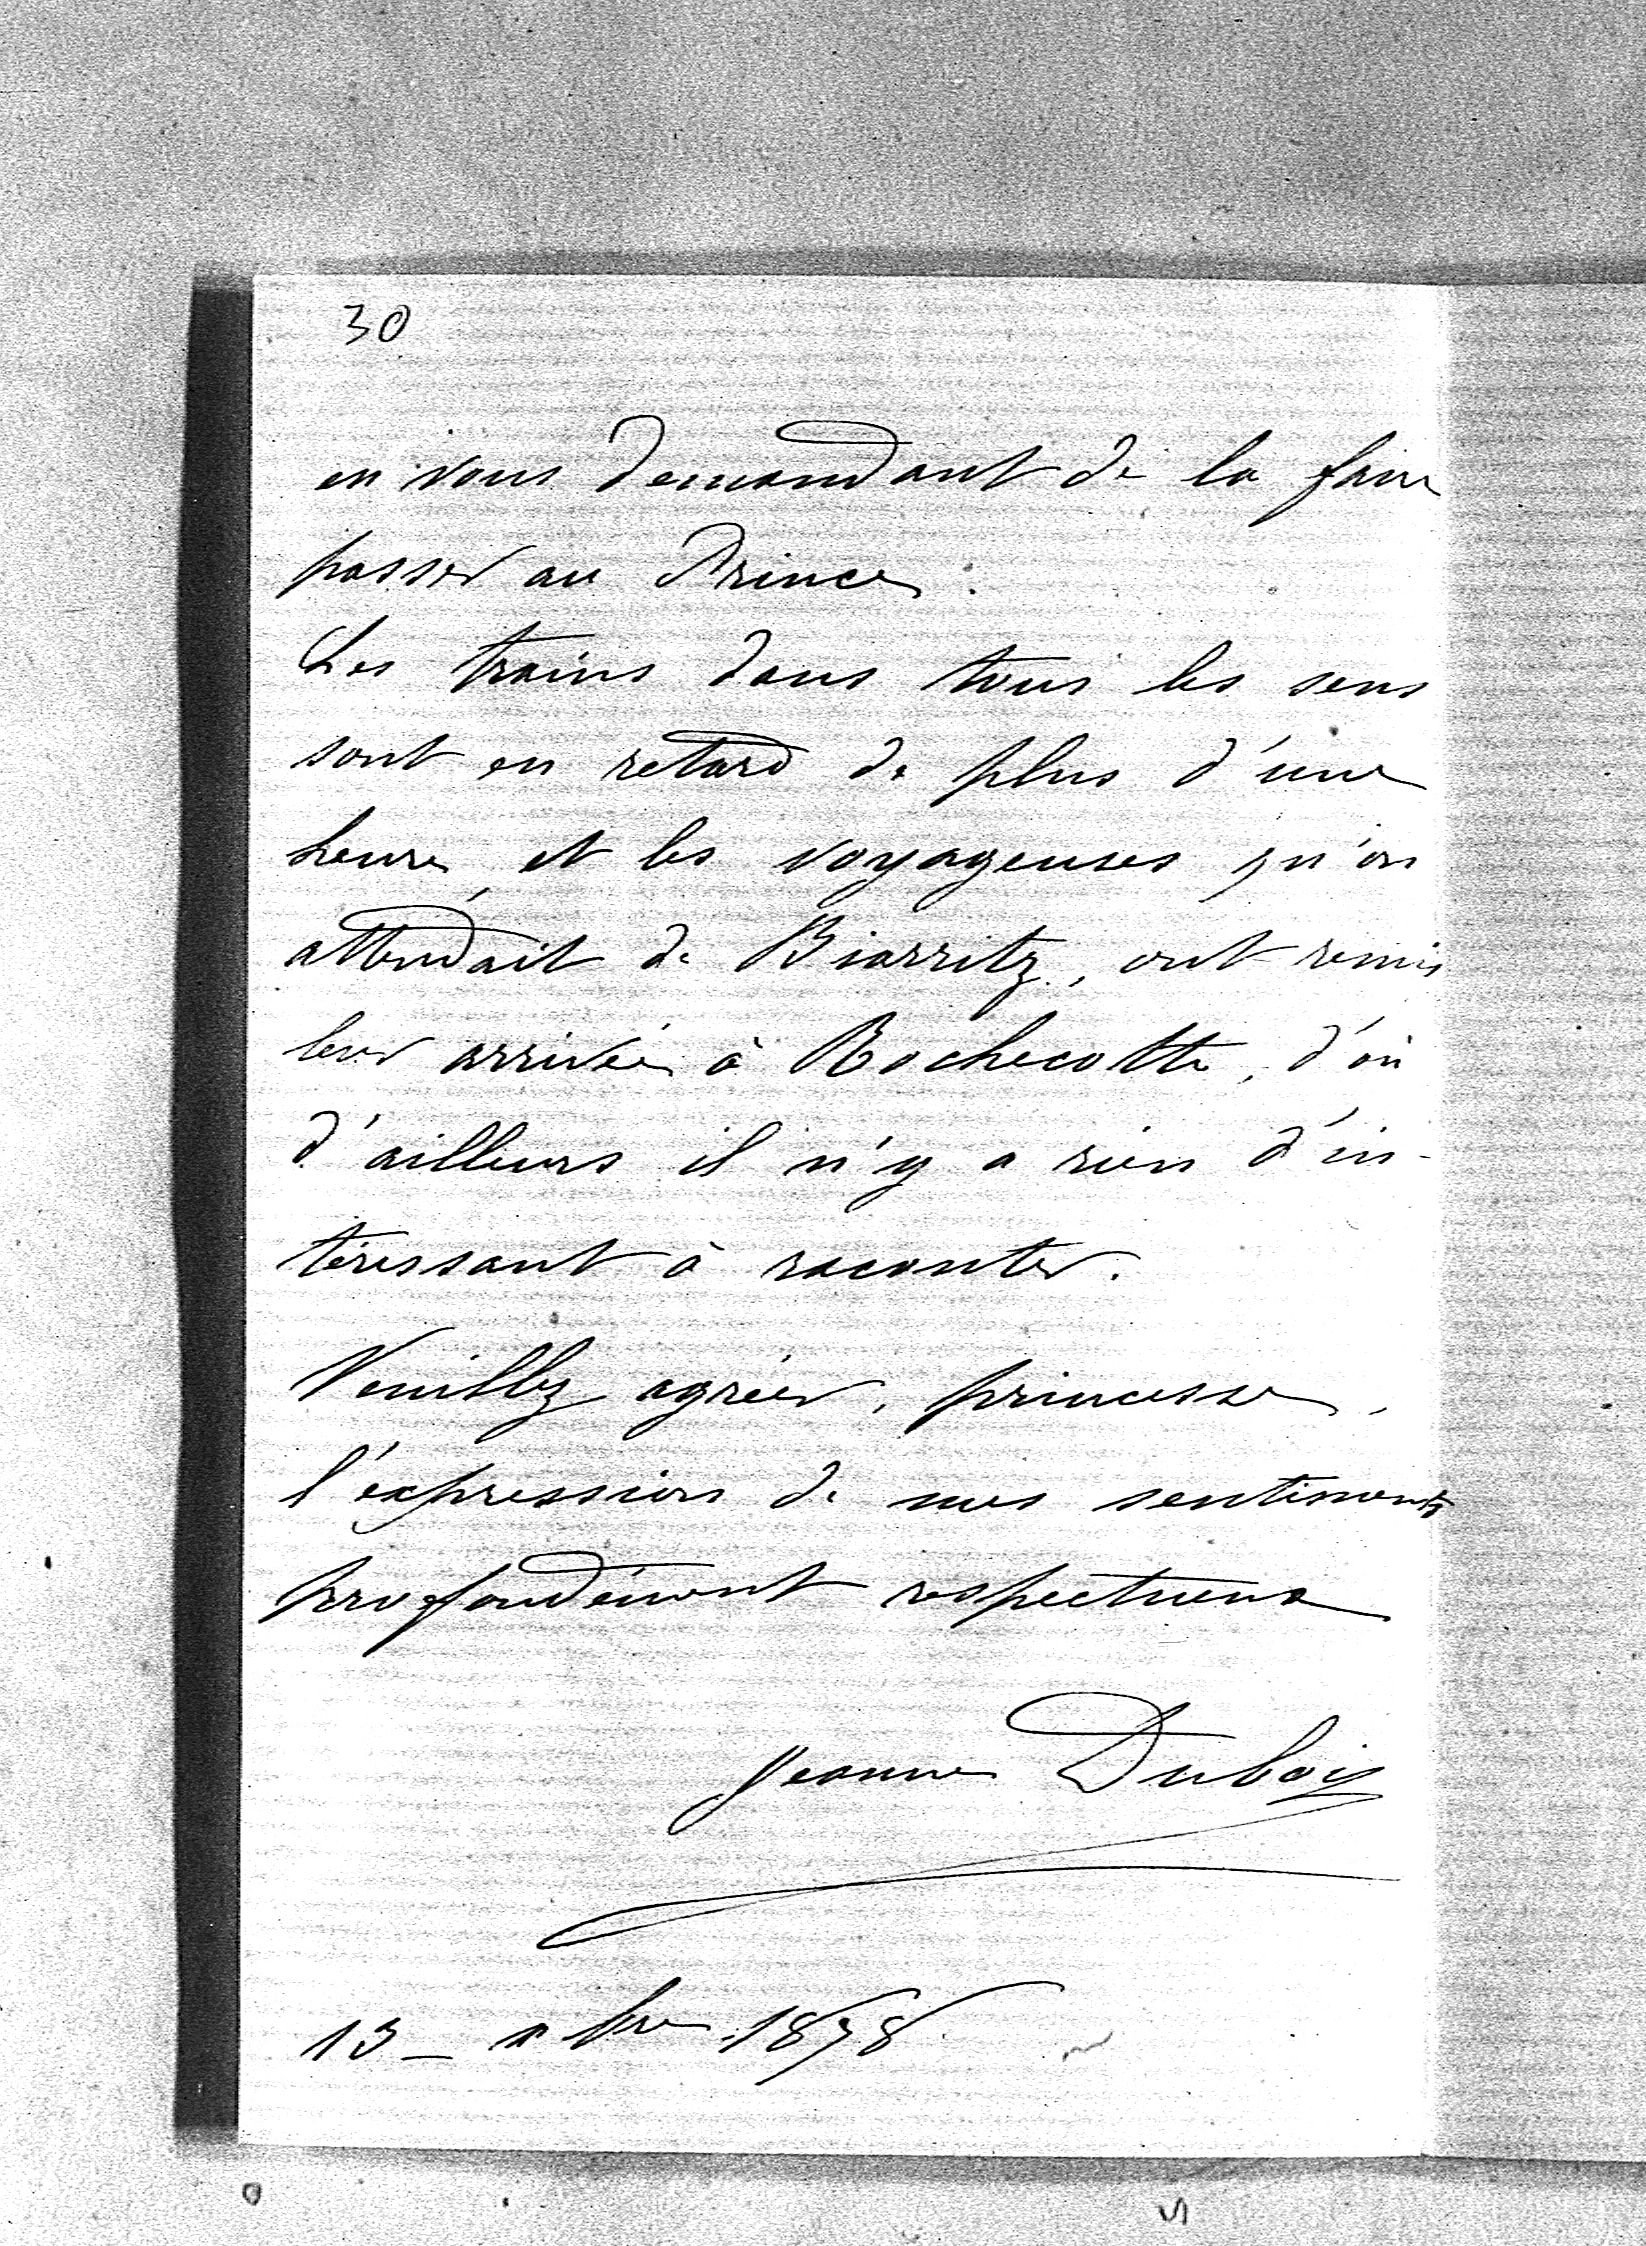 30
en vous demandant de la faire
passer au Prince.
Les trains dans tous les sens
sont en retard de plus d'une
heure, et les voyageuses qu'on
attendait de Biarritz, ont remis
leur arrivée à Rochecotte, d'où
d'ailleurs il n'y a rien d'in-
téressant à raconter.
Veuillez agréer, princesse,
l'expression de mes sentiments
profondément respectueux
Jeanne Dubois
13 - bre 1898